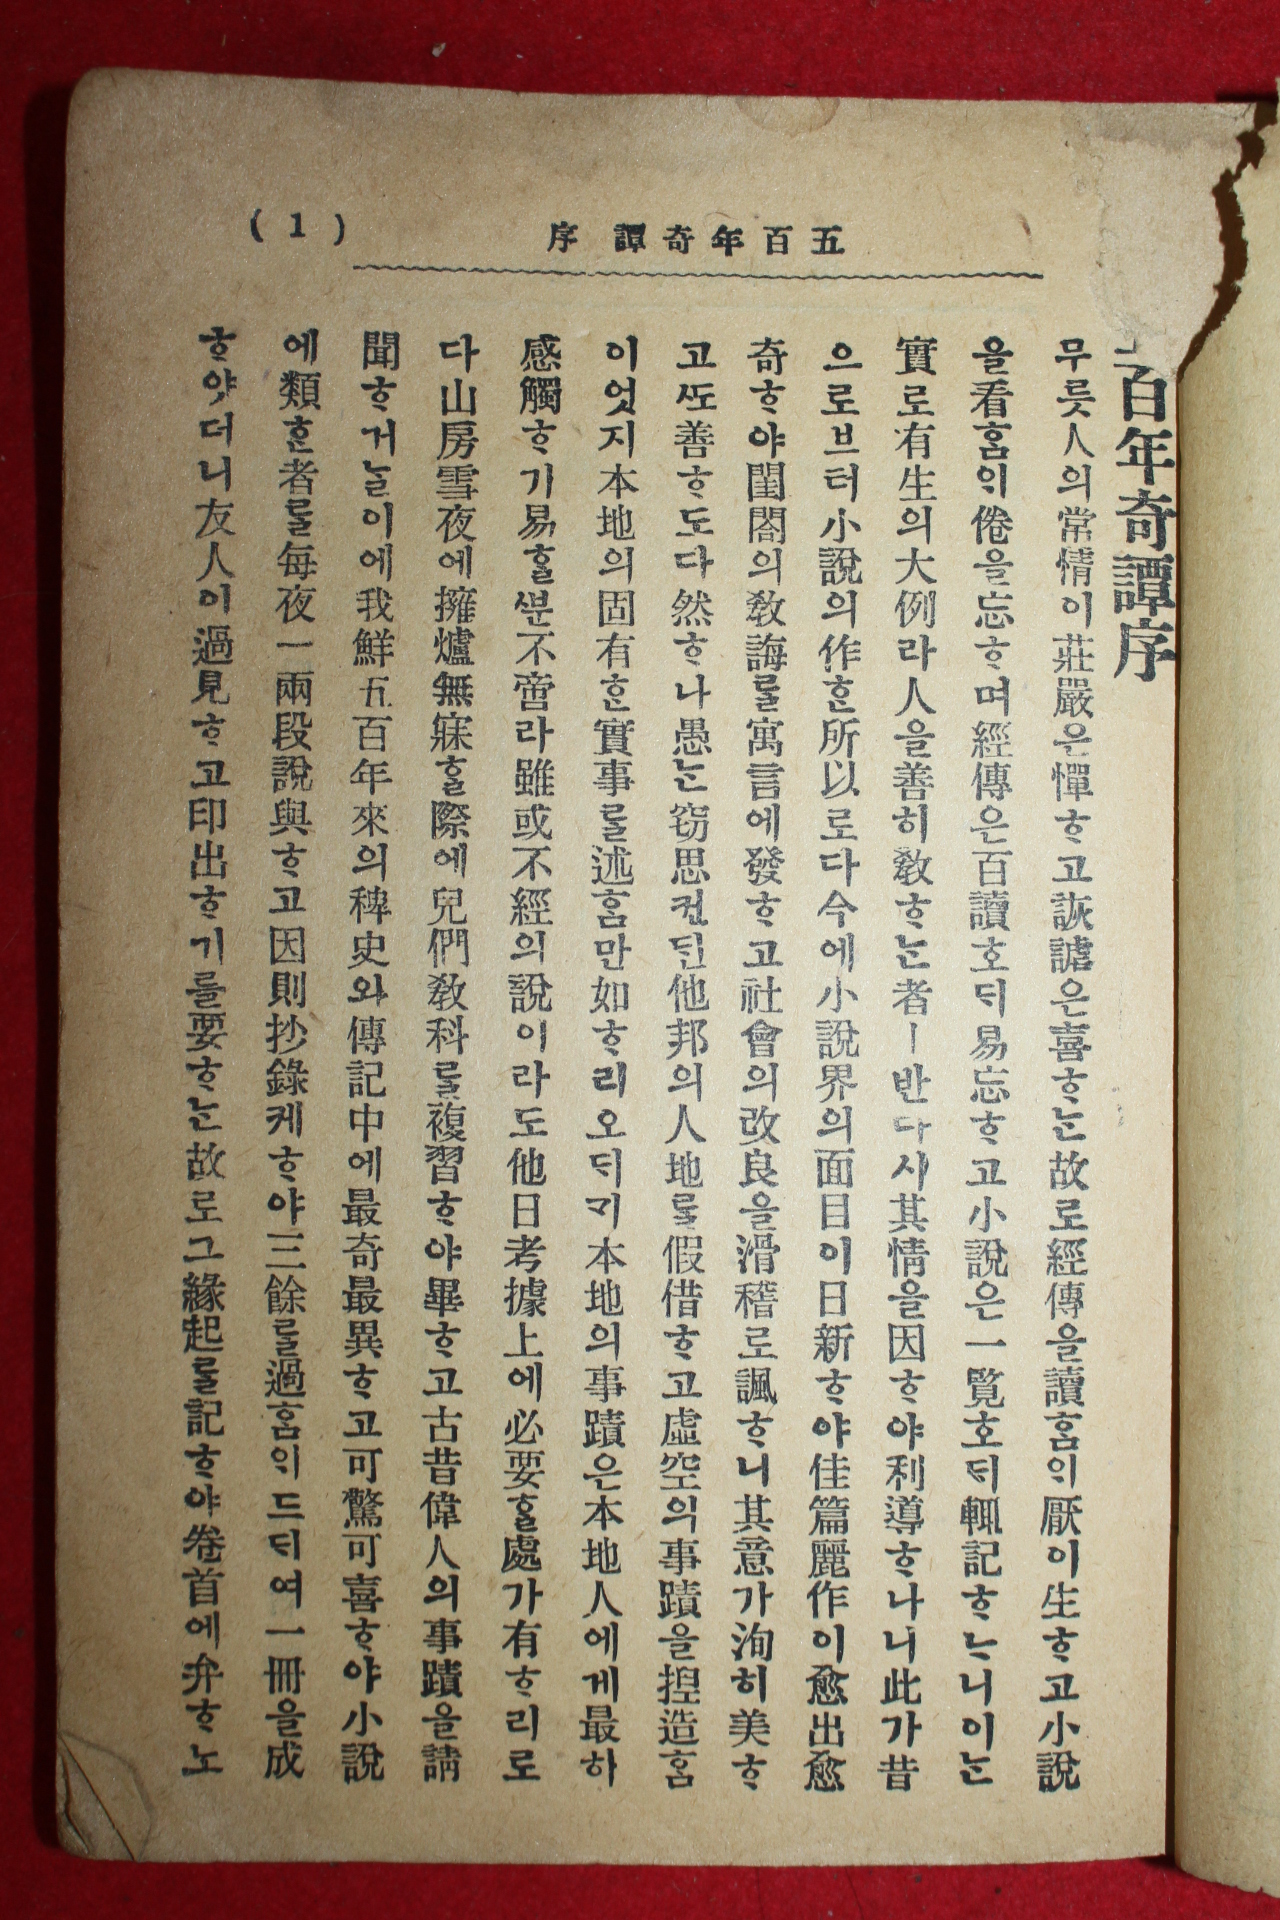 五百年奇譚 序
( 1 )
百年奇譚序
무릇人의常情이莊嚴은憚ᄒᆞ고詼謔은喜ᄒᆞᄂᆞᆫ故로經傳을讀ᄒᆞᆷᄋᆡ厭이生ᄒᆞ고小說
을看ᄒᆞᆷᄋᆡ倦을忘ᄒᆞ며經傳은百讀호ᄃᆡ易忘ᄒᆞ고小說은一覽호ᄃᆡ輒記ᄒᆞᄂᆞ니이ᄂᆞᆫ
實로有生의大例라人을善히敎ᄒᆞᄂᆞᆫ者ㅣ반다시其情을因ᄒᆞ야利導ᄒᆞ나니此가昔
으로브터小說의作ᄒᆞᆫ所以로다今에小說界의面目이日新ᄒᆞ야佳篇麗作이愈出愈
奇ᄒᆞ야閨閤의敎誨ᄅᆞᆯ寓言에發ᄒᆞ고社會의改良을滑稽로諷ᄒᆞ니其意가洵히美ᄒᆞ
고ᄯᅩ善ᄒᆞ도다然ᄒᆞ나愚ᄂᆞᆫ窃思컨ᄃᆡᆫ他邦의人地ᄅᆞᆯ假借ᄒᆞ고虛空의事蹟을揑造ᄒᆞᆷ
이엇지本地의固有ᄒᆞᆫ實事ᄅᆞᆯ述ᄒᆞᆷ만如ᄒᆞ리오ᄃᆡ기本地의事蹟은本地人에게最하
感觸ᄒᆞ기易ᄒᆞᆯᄲᅮᆫ不啻라雖或不經의說이라도他日考據上에必要ᄒᆞᆯ處가有ᄒᆞ리로
다山房雪夜에擁爐無寐ᄒᆞᆯ際에兒們敎科ᄅᆞᆯ複習ᄒᆞ야畢ᄒᆞ고古昔偉人의事蹟을請
聞ᄒᆞ거ᄂᆞᆯ이에我鮮五百年來의稗史와傳記中에最奇最異ᄒᆞ고可驚可喜ᄒᆞ야小說
에類ᄒᆞᆫ者ᄅᆞᆯ每夜一兩段說與ᄒᆞ고因則抄錄케ᄒᆞ야三餘ᄅᆞᆯ過ᄒᆞᆷᄋᆡ드ᄃᆡ여一冊을成
ᄒᆞ얏더니友人이過見ᄒᆞ고印出ᄒᆞ기를要ᄒᆞᄂᆞᆫ故로그緣起ᄅᆞᆯ記ᄒᆞ야卷首에弁ᄒᆞ노